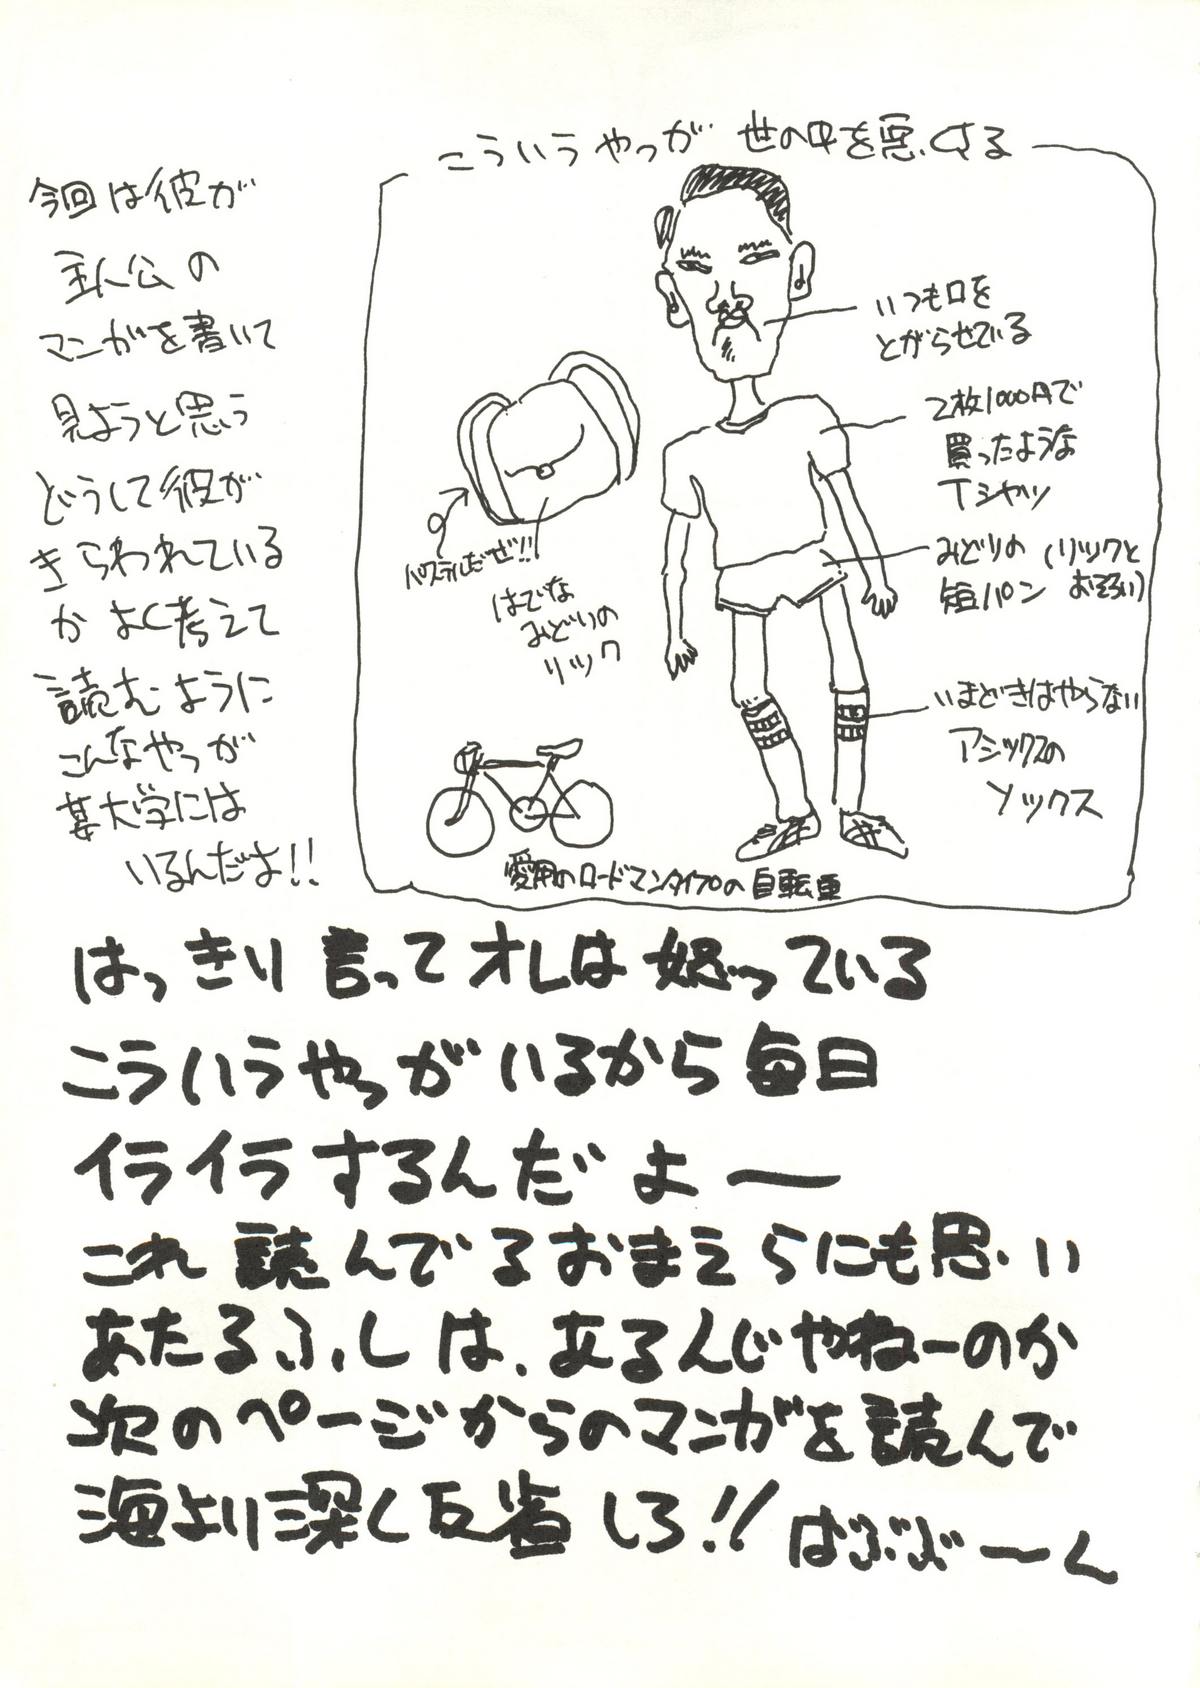 こういうやつが 世の中を悪くする
今回は彼が
主人公の
マンガを書いて
見ようと思う
どうして彼が
きらわれている
かよく考えて
読むように
こんなやつが
某大学には
いるんだよ!!
いつも口を
とがらせている
2枚1000円で
買ったような
Tシャツ
みどりの (リックと
短パン おそろい)
いまどきはやらない
アシックスの
ソックス
パステルだぜ!!
はでな
みどりの
リック
愛用のロードマンタイプの自転車
はっきり言ってオレは怒っている
こういうやつがいるから毎日
イライラするんだよ〜
これ読んでるおまえらにも思い
あたるふしは、あるんじゃねーのか
次のページからのマンガを読んで
海より深く反省しろ!! はぶぶ〜ん